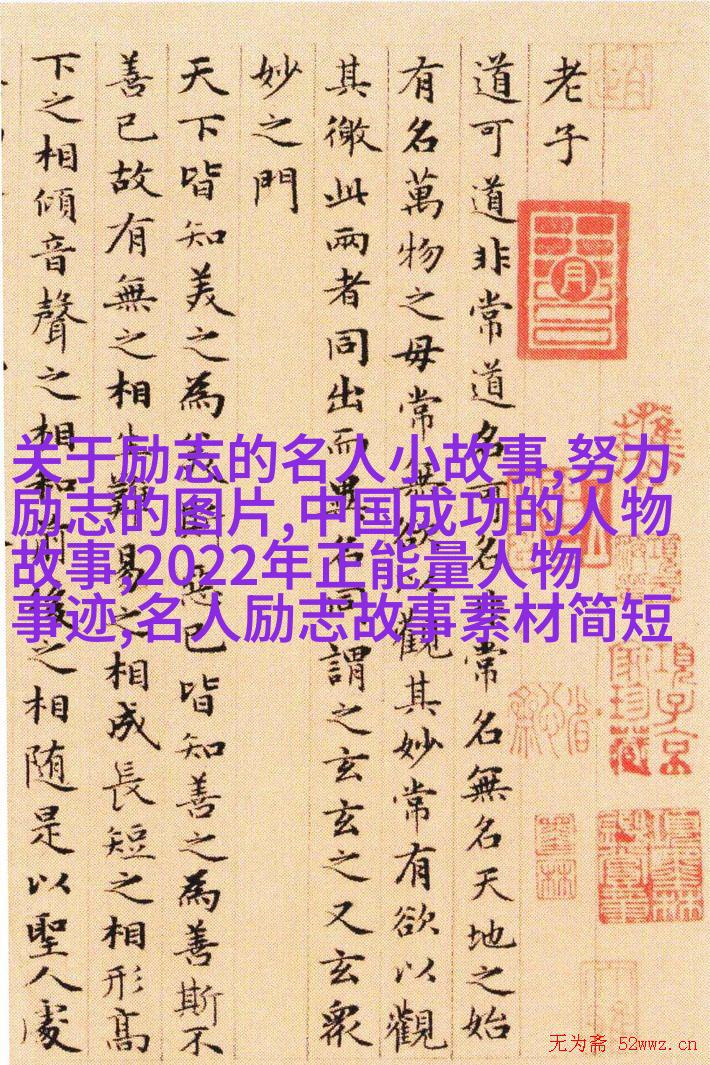 老子
道可道非常道名可名非常名無名天地之始
有名萬物之母常無欲以觀其妙常有欲以觀
其徼此兩者同出而異名同謂之玄玄之又玄眾
妙之門
天下皆知美之為美斯惡已皆知善之為善斯不
善已故有無之相生難易之相成長短之相形高
下之相傾音聲之相和前後之相随是以聖人處
关于励志的名人小故事,努力
励志的图片,中国成功的人物
故事,2022年正能量人物
事迹,名人励志故事素材简短
項子京
家珍藏
无为斋 52wwz.cn